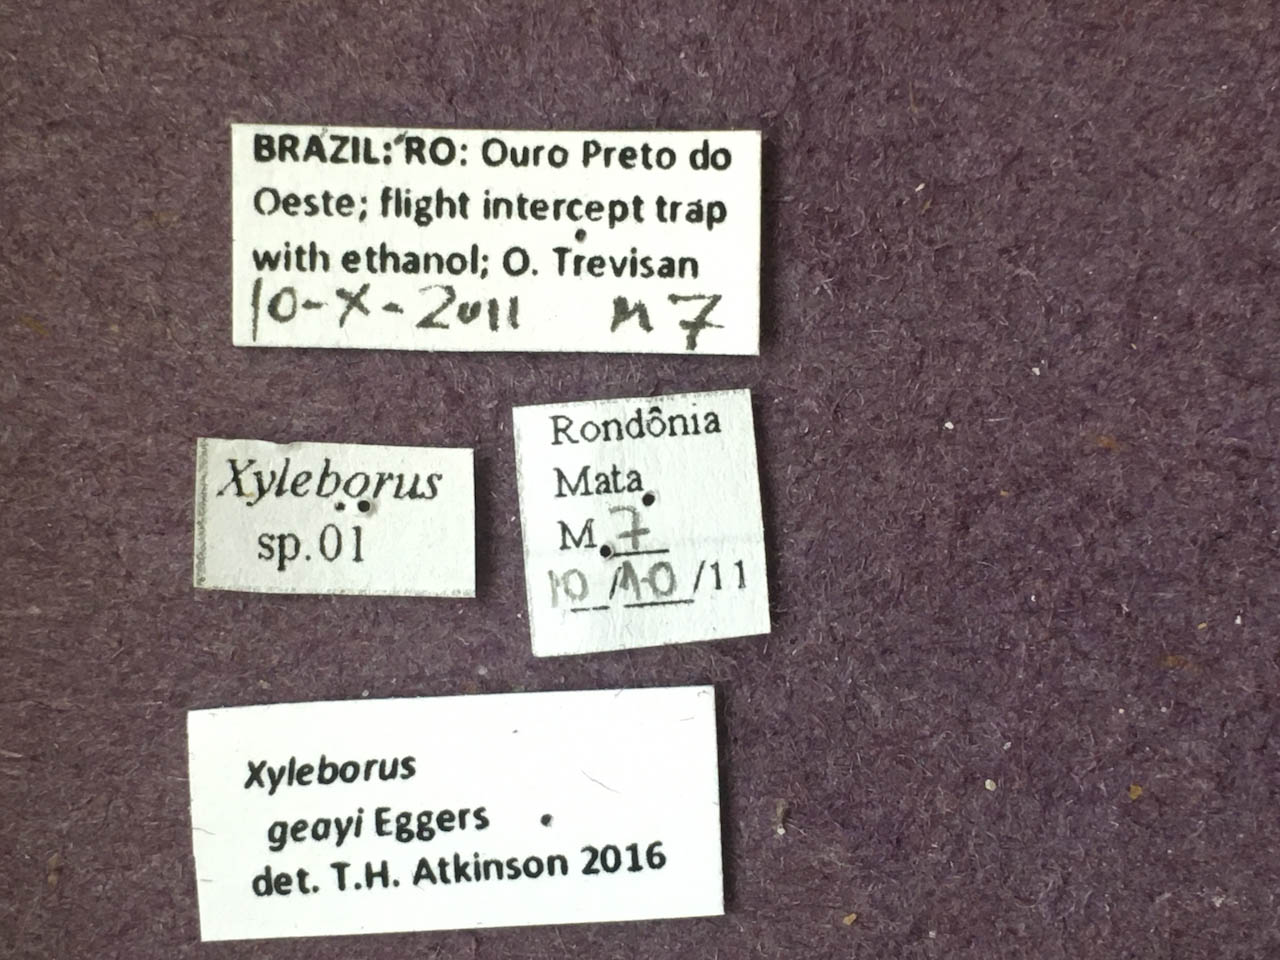 BRAZIL: RO: Ouro Preto do
Oeste; flight intercept trap
with ethanol; O. Trevisan
10-X-2011 M7
Xyleborus
sp.01
Rondônia
Mata
M. 7
10/10/11
Xyleborus
geayi Eggers
det. T.H. Atkinson 2016